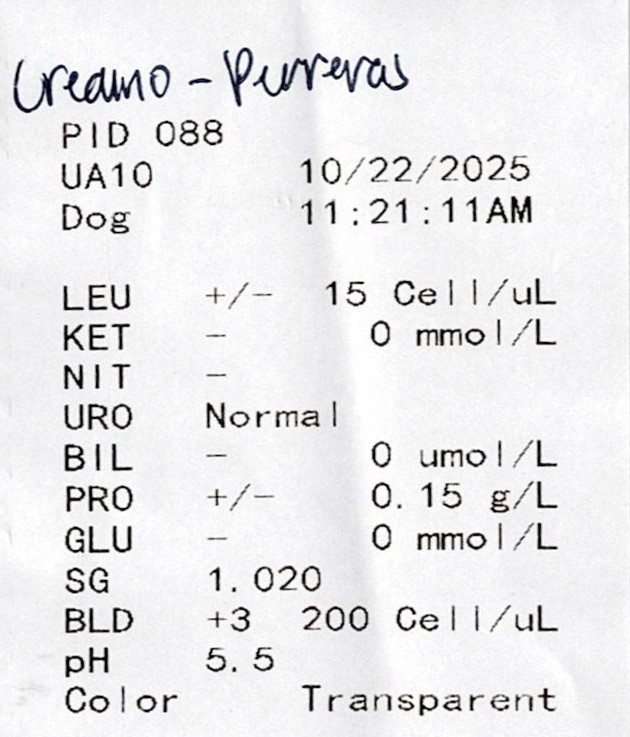 Creamo - Perreras
PID 088
UA10 10/22/2025
Dog 11:21:11AM
LEU +/- 15 Cell/uL
KET - 0 mmol/L
NIT -
URO Normal
BIL - 0 umol/L
PRO +/- 0.15 g/L
GLU - 0 mmol/L
SG 1.020
BLD +3 200 Cell/uL
pH 5.5
Color Transparent